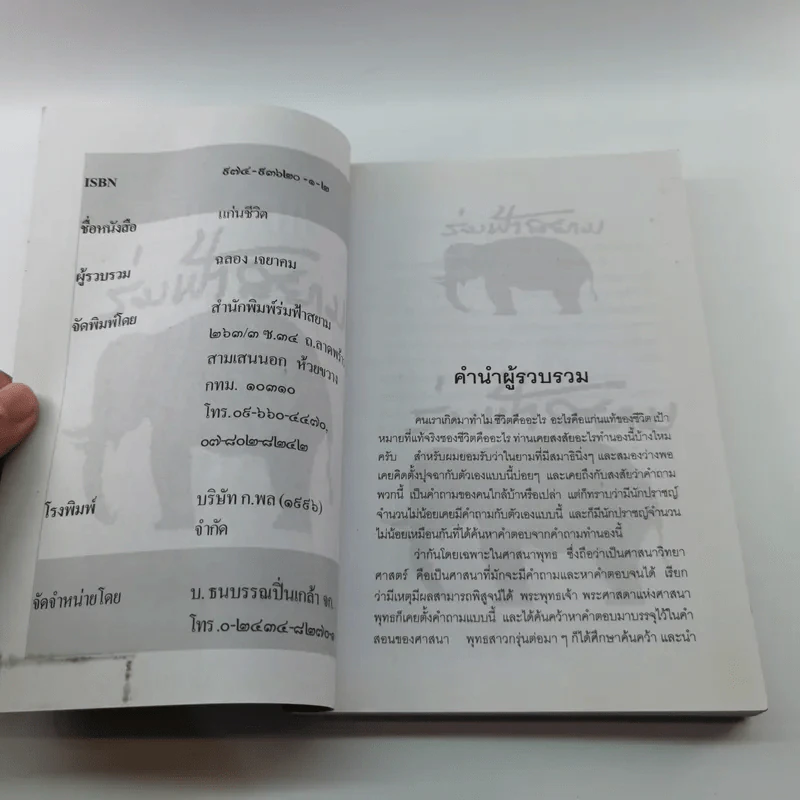 ISBN ๙๗๔-๙๓๖๒๐-๑-๒
ชื่อหนังสือ แก่นชีวิต
ผู้รวบรวม ฉลอง เจยาคม
จัดพิมพ์โดย สำนักพิมพ์ร่มฟ้าสยาม
๒๖๓/๓ ซ.๓๔ ถ.ลาดพร้าว
สามเสนนอก ห้วยขวาง
กทม. ๑๐๓๑๐
โทร.๐๙-๖๖๐-๔๔๗๐,
๐๗-๘๐๒-๘๒๔๒
โรงพิมพ์ บริษัท ก.พล (๑๙๙๖)
จำกัด
จัดจำหน่ายโดย บ. ธนบรรณปิ่นเกล้า จก.
โทร.๐-๒๔๓๔-๘๒๗๐-๑
ร่มฟ้าสยาม
ร่มฟ้าสยาม
คำนำผู้รวบรวม
คนเราเกิดมาทำไม ชีวิตคืออะไร อะไรคือแก่นแท้ของชีวิต เป้า
หมายที่แท้จริงของชีวิตคืออะไร ท่านเคยสงสัยอะไรทำนองนี้บ้างไหม
ครับ สำหรับผมยอมรับว่าในยามที่มีสมาธินิ่งๆ และสมองว่างพอ
เคยคิดตั้งปุจฉากับตัวเองแบบนี้บ่อยๆ และเคยถึงกับสงสัยว่าคำถาม
พวกนี้ เป็นคำถามของคนใกล้บ้าหรือเปล่า แต่ก็ทราบว่ามีนักปราชญ์
จำนวนไม่น้อยเคยมีคำถามกับตัวเองแบบนี้ และก็มีนักปราชญ์จำนวน
ไม่น้อยเหมือนกันที่ได้ค้นหาคำตอบจากคำถามทำนองนี้
ว่ากันโดยเฉพาะในศาสนาพุทธ ซึ่งถือว่าเป็นศาสนาวิทยา
ศาสตร์ คือเป็นศาสนาที่มักจะมีคำถามและหาคำตอบจนได้ เรียก
ว่ามีเหตุมีผลสามารถพิสูจน์ได้ พระพุทธเจ้า พระศาสดาแห่งศาสนา
พุทธก็เคยตั้งคำถามแบบนี้ และได้ค้นคว้าหาคำตอบมาบรรจุไว้ในคำ
สอนของศาสนา พุทธสาวกรุ่นต่อมา ๆ ก็ได้ศึกษาค้นคว้า และนำ